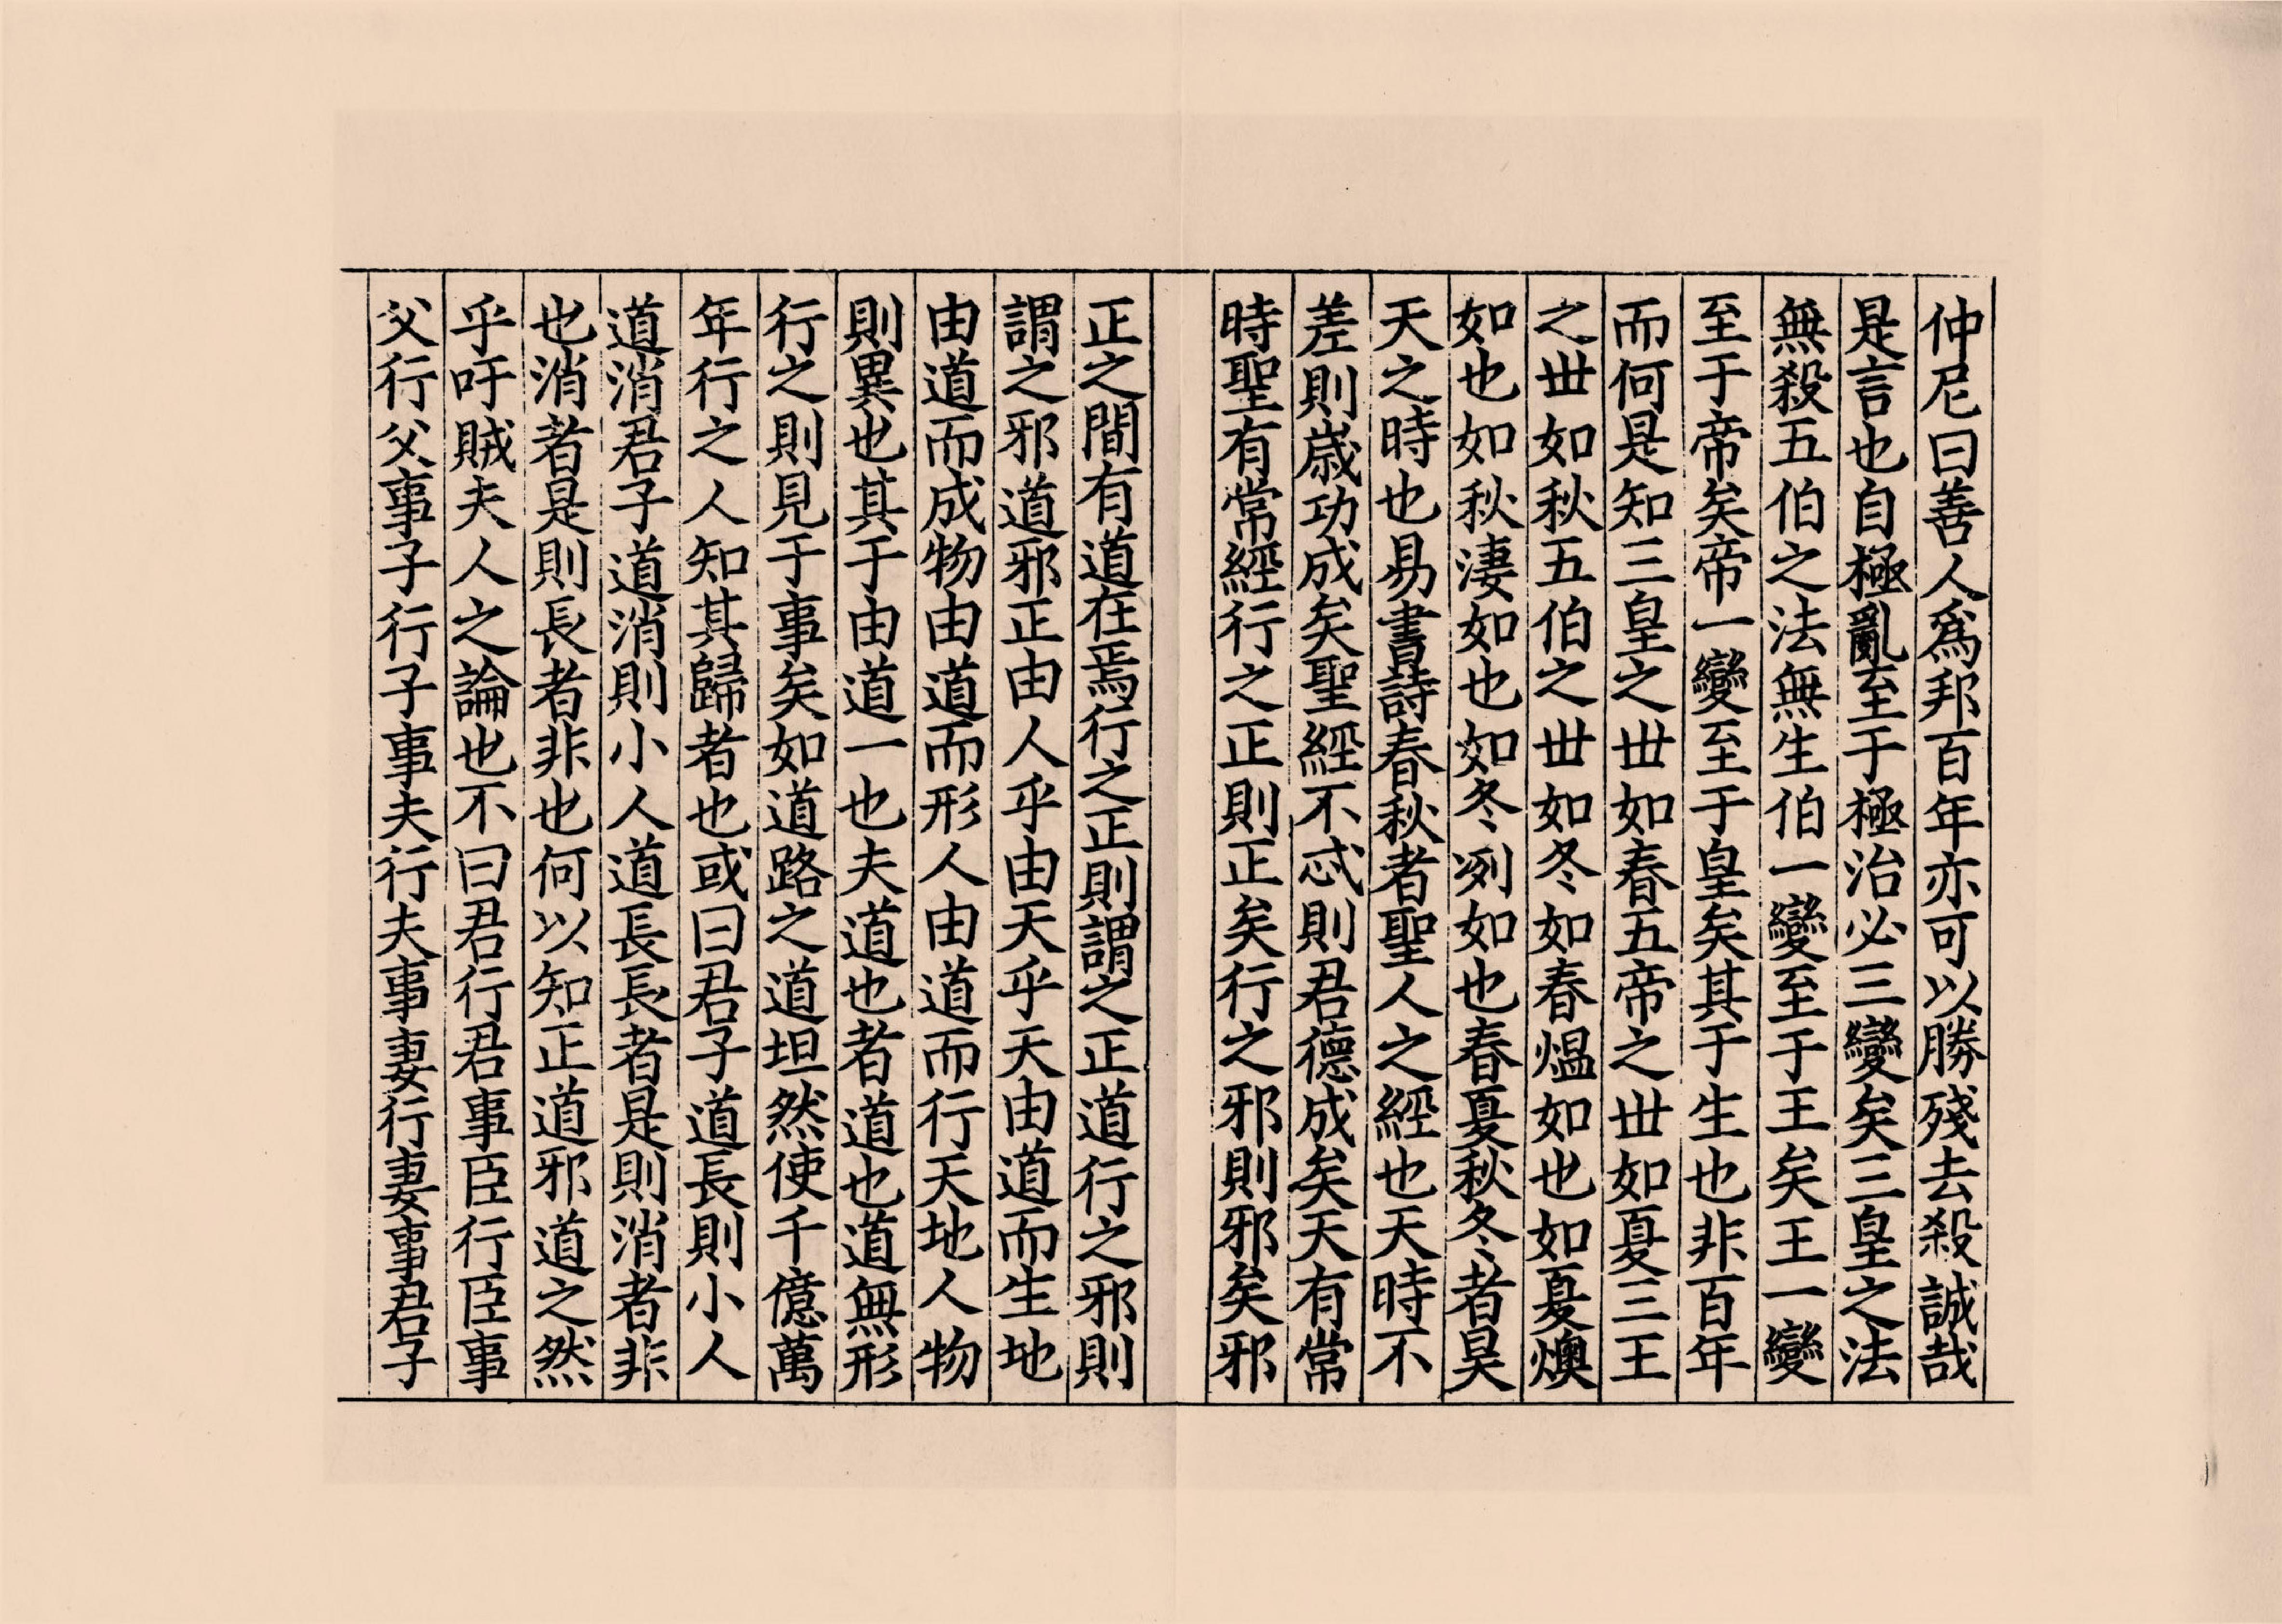 仲尼曰善人爲邦百年亦可以勝殘去殺誠哉
是言也自極亂至于極治必三變矣三皇之法
無殺五伯之法無生伯一變至于王矣王一變
至于帝矣帝一變至于皇矣其于生也非百年
而何是知三皇之世如春五帝之世如夏三王
之世如秋五伯之世如冬如春熅如也如夏燠
如也如秋淒如也如冬冽如也春夏秋冬者昊
天之時也易書詩春秋者聖人之經也天時不
差則歲功成矣聖經不忒則君德成矣天有常
時聖有常經行之正則正矣行之邪則邪矣邪
正之間有道在焉行之正則謂之正道行之邪則
謂之邪道邪正由人乎由天乎天由道而生地
由道而成物由道而形人由道而行天地人物
則異也其于由道一也夫道也者道也道無形
行之則見于事矣如道路之道坦然使千億萬
年行之人知其歸者也或曰君子道長則小人
道消君子道消則小人道長長者是則消者非
也消者是則長者非也何以知正道邪道之然
乎吁賊夫人之論也不曰君行君事臣行臣事
父行父事子行子事夫行夫事妻行妻事君子